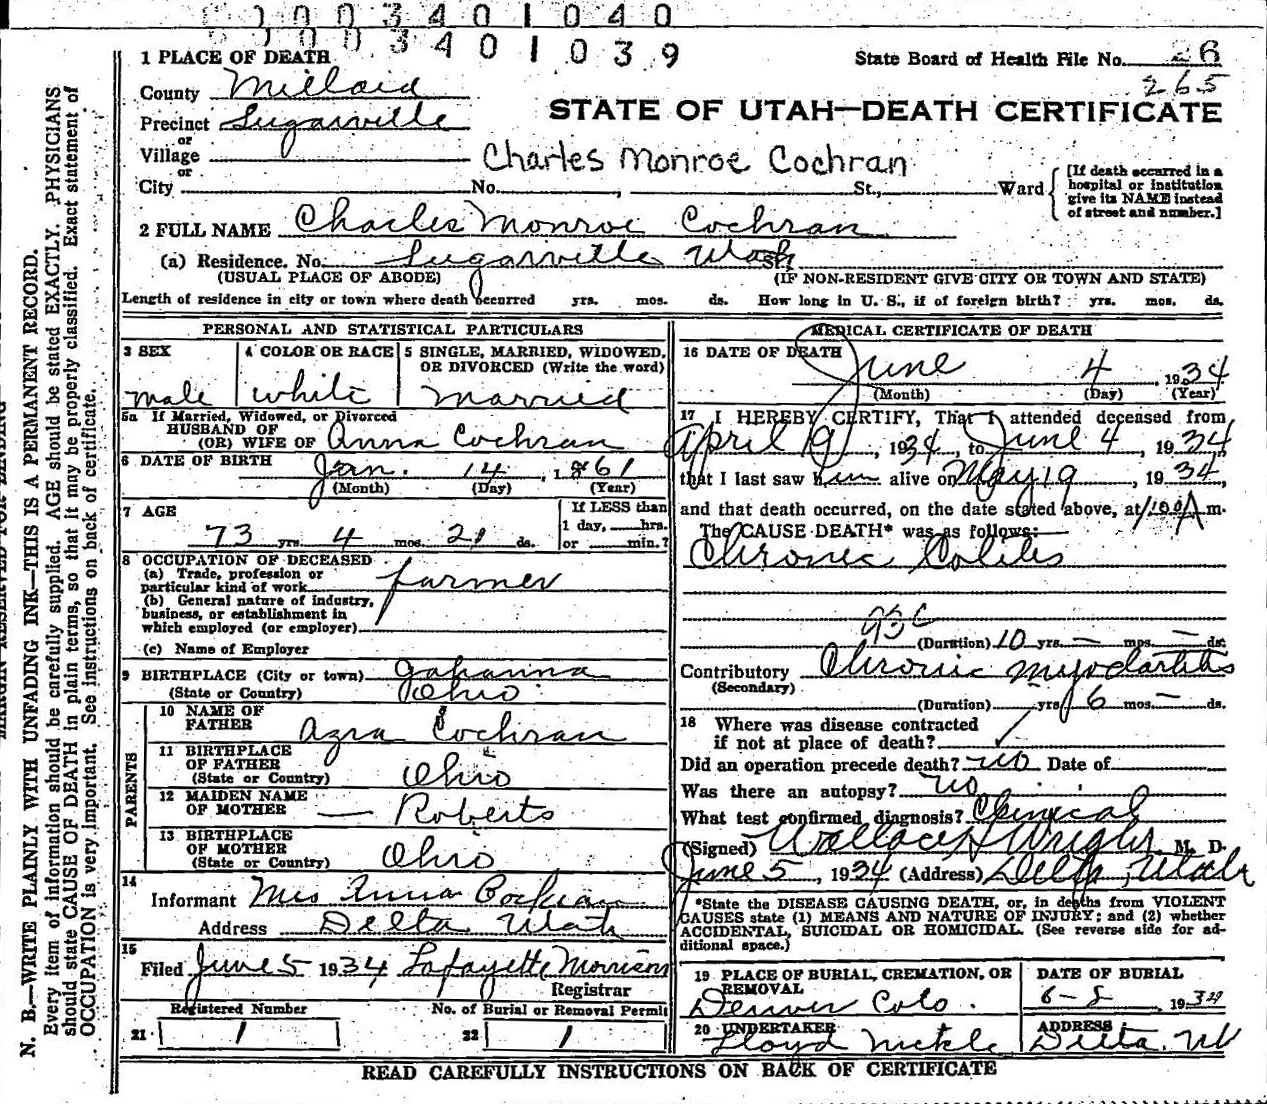 0003401040
0003401039
1 PLACE OF DEATH
State Board of Health File No. 28
265
County Millard
STATE OF UTAH—DEATH CERTIFICATE
Precinct Sugarville
or
Village
Charles Monroe Cochran
or
City No. , St., Ward
[If death occurred in a hospital or institution give its NAME instead of street and number.]
2 FULL NAME Charles Monroe Cochran
(a) Residence. No. Sugarville Utah
(USUAL PLACE OF ABODE) (IF NON-RESIDENT GIVE CITY OR TOWN AND STATE)
Length of residence in city or town where death occurred yrs. mos. ds. How long in U. S., if of foreign birth? yrs. mos. ds.
PERSONAL AND STATISTICAL PARTICULARS
3 SEX 4 COLOR OR RACE 5 SINGLE, MARRIED, WIDOWED,
OR DIVORCED (Write the word)
male white married
5a If Married, Widowed, or Divorced
HUSBAND OF
(OR) WIFE OF Anna Cochran
6 DATE OF BIRTH Jan. 14, 1861
(Month) (Day) (Year)
7 AGE If LESS than
1 day, hrs.
73 yrs. 4 mos. 21 ds. or min.?
8 OCCUPATION OF DECEASED
(a) Trade, profession or
particular kind of work farmer
(b) General nature of industry,
business, or establishment in
which employed (or employer)
(c) Name of Employer
9 BIRTHPLACE (City or town) Gahanna
(State or Country) Ohio
PARENTS
10 NAME OF
FATHER Azra Cochran
11 BIRTHPLACE
OF FATHER
(State or Country) Ohio
12 MAIDEN NAME
OF MOTHER — Roberts
13 BIRTHPLACE
OF MOTHER
(State or Country) Ohio
14
Informant Mrs Anna Cochran
Address Delta Utah
15
Filed June 5 1934 Lafayette Morrison
Registrar
Registered Number No. of Burial or Removal Permit
21 1 22 1
MEDICAL CERTIFICATE OF DEATH
16 DATE OF DEATH
June 4, 1934
(Month) (Day) (Year)
17 I HEREBY CERTIFY, That I attended deceased from
April 19, 1934, to June 4, 1934,
that I last saw him alive on May 19, 1934,
and that death occurred, on the date stated above, at 1:00 A m.
The CAUSE DEATH* was as follows:
Chronic Colitis
(Duration) 10 yrs. — mos. — ds.
Contributory Chronic myocarditis
(Secondary)
(Duration) — yrs. 6 mos. — ds.
18 Where was disease contracted
if not at place of death?
Did an operation precede death? no Date of
Was there an autopsy? no
What test confirmed diagnosis? Clinical
(Signed) Wallace H Wright M. D.
June 5, 1934 (Address) Delta, Utah
*State the DISEASE CAUSING DEATH, or, in deaths from VIOLENT
CAUSES state (1) MEANS AND NATURE OF INJURY; and (2) whether
ACCIDENTAL, SUICIDAL OR HOMICIDAL. (See reverse side for ad-
ditional space.)
19 PLACE OF BURIAL, CREMATION, OR
REMOVAL
Denver Colo.
DATE OF BURIAL
6-8, 1934
20 UNDERTAKER
Floyd Nickle
ADDRESS
Delta, Ut
READ CAREFULLY INSTRUCTIONS ON BACK OF CERTIFICATE
MARGIN RESERVED FOR BINDING
N. B.—WRITE PLAINLY WITH UNFADING INK—THIS IS A PERMANENT RECORD.
Every item of information should be carefully supplied. AGE should be stated EXACTLY. PHYSICIANS
should state CAUSE OF DEATH in plain terms, so that it may be properly classified. Exact statement of
OCCUPATION is very important. See instructions on back of certificate.